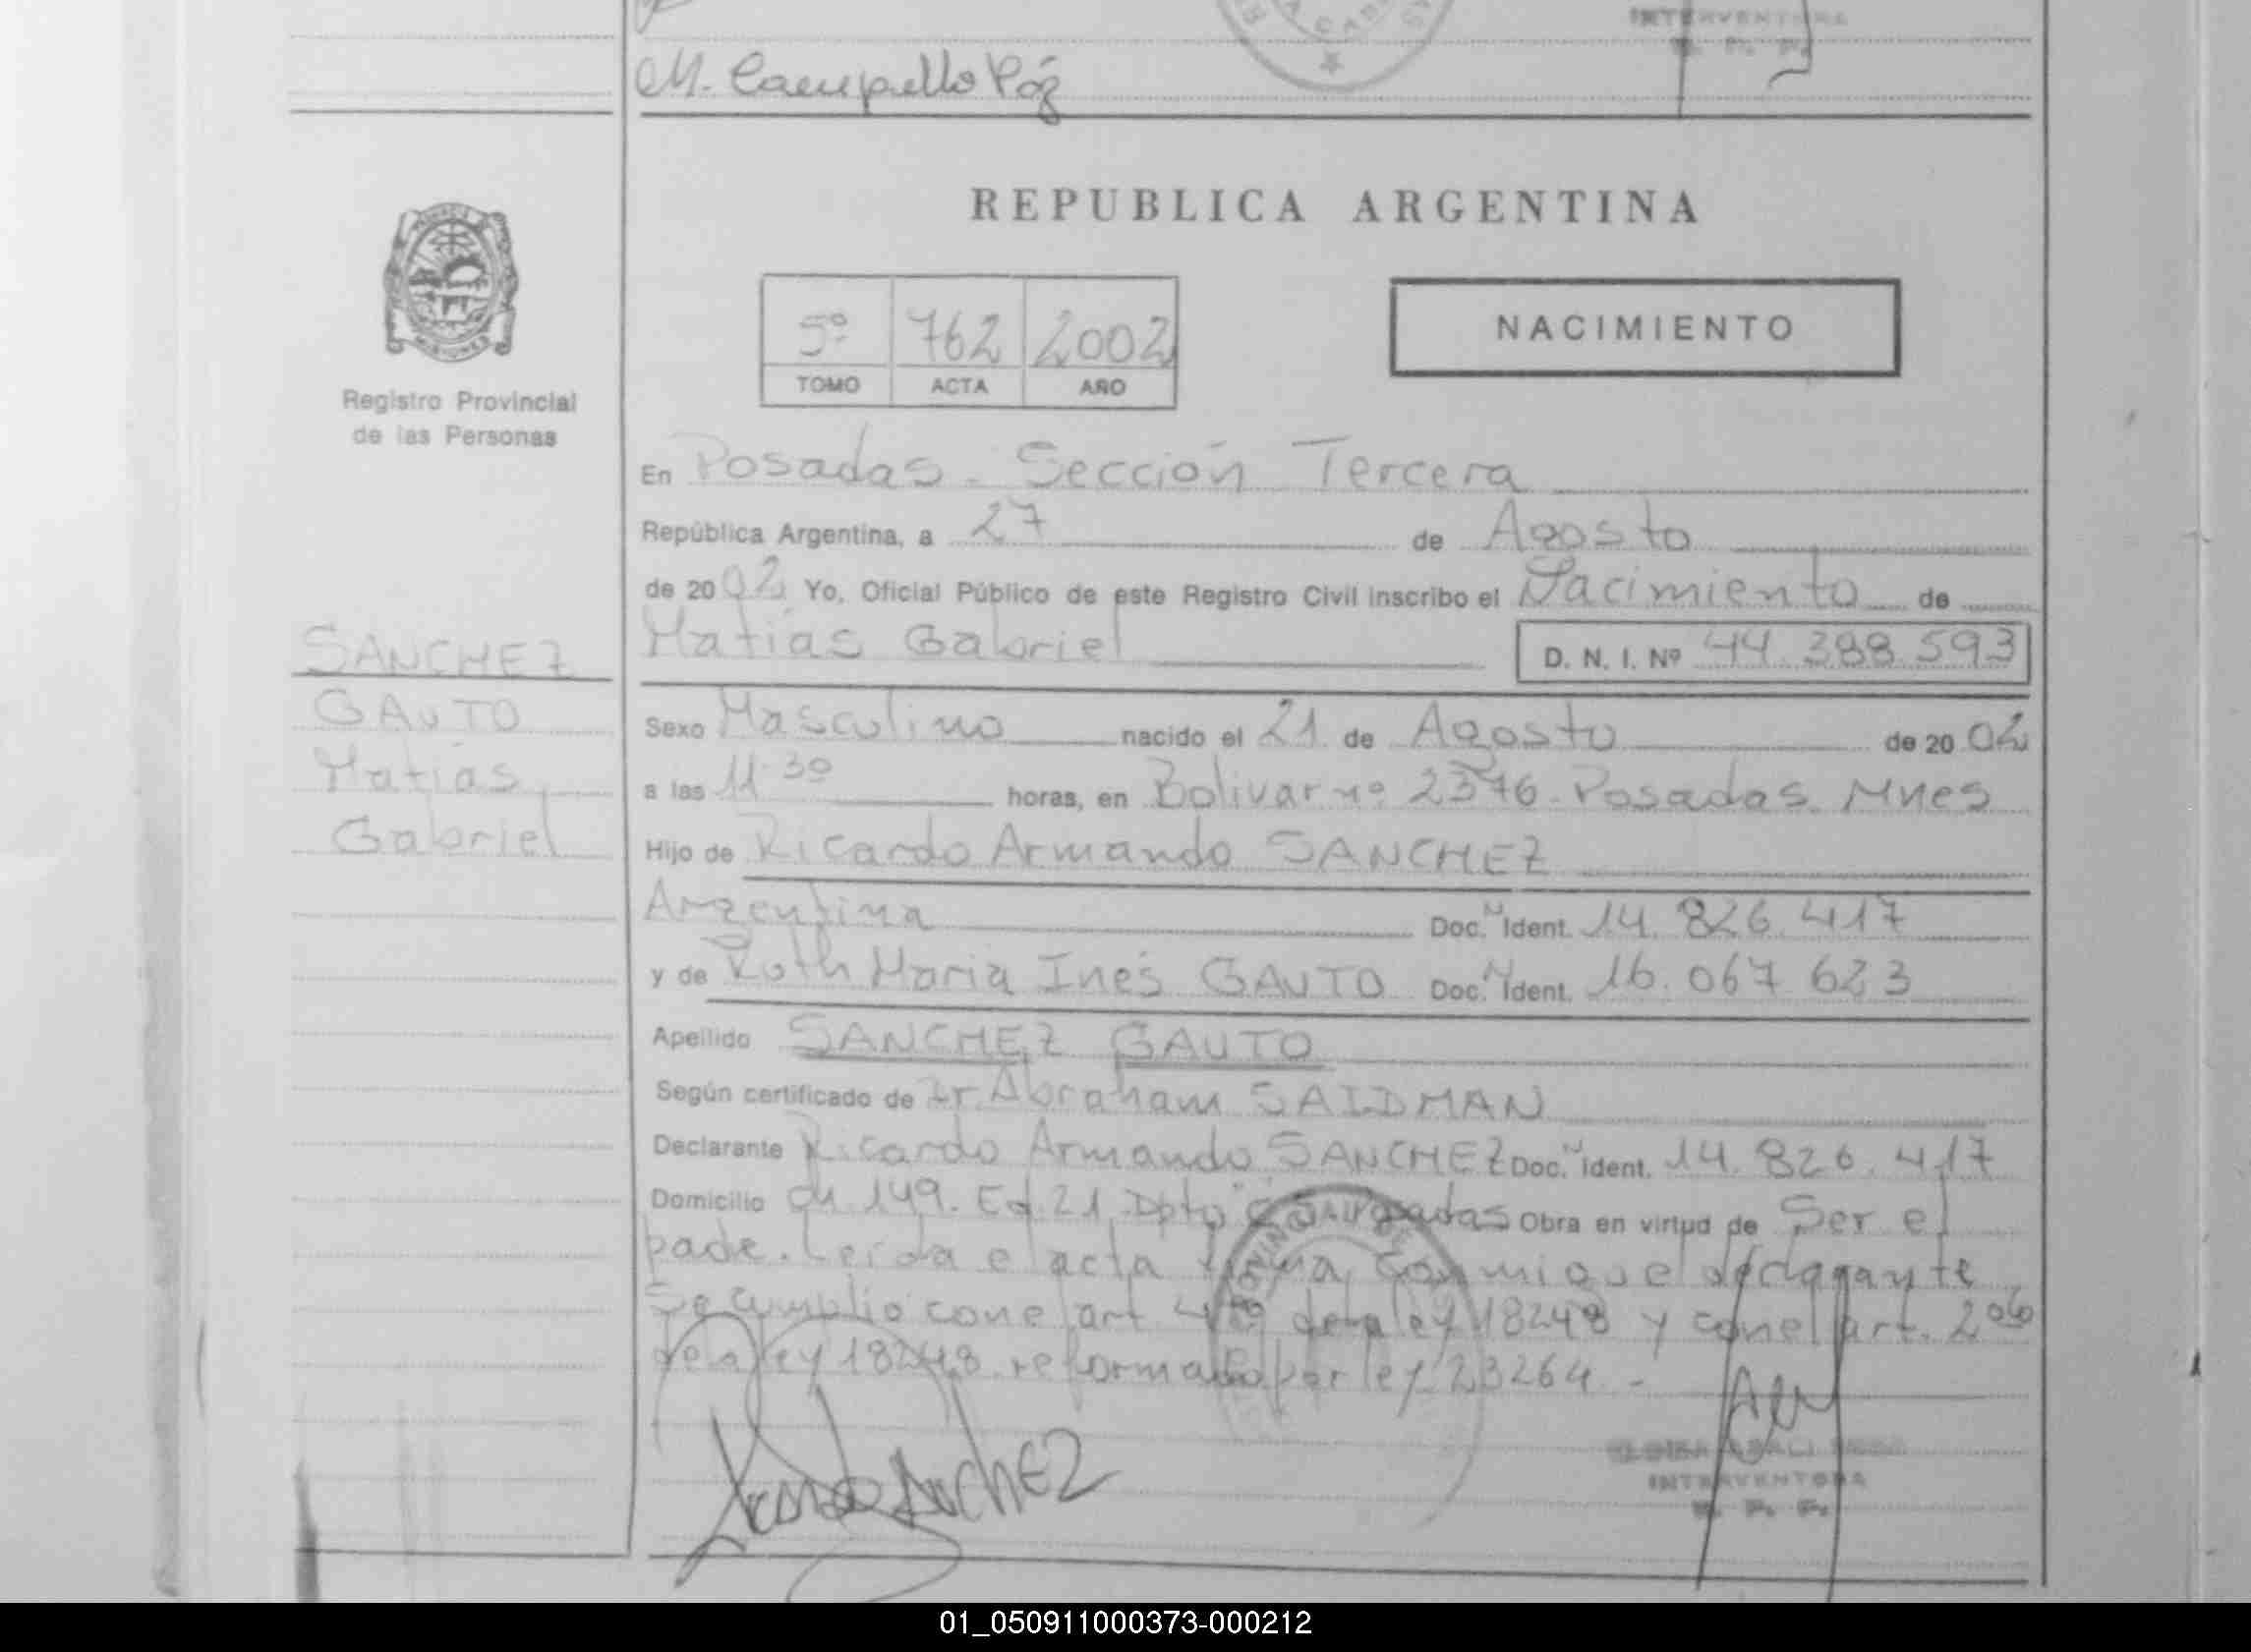 INTERVENTORA
R. P. P.
M. Campello Póz
REPUBLICA ARGENTINA
MISIONES
Registro Provincial
de las Personas
5º 762 2002
TOMO ACTA AÑO
NACIMIENTO
En Posadas - Sección Tercera
República Argentina, a 27 de Agosto
de 2002 Yo, Oficial Público de este Registro Civil inscribo el Nacimiento de
Matías Gabriel D. N. I. Nº 44.388.593
SANCHEZ
GAUTO
Matías
Gabriel
Sexo Masculino nacido el 21 de Agosto de 2002
a las 11:30 horas, en Bolivar nº 2376 - Posadas. Mnes
Hijo de Ricardo Armando SANCHEZ
Argentina Doc. N Ident. 14.826.417
y de Ruth Maria Inés GAUTO Doc. N Ident. 16.067 623
Apellido SANCHEZ GAUTO
Según certificado de Dr. Abraham SAIDMAN
Declarante Ricardo Armando SANCHEZ Doc. N Ident. 14.826.417
Domicilio Ch. 149. Ed. 21. Dpto Posadas Obra en virtud de Ser el
padre. Leída el acta firma conmigo el declarante
Se cumplió con el art. 4to de la ley 18248 y con el art. 2do
de la ley 18248 reformado por ley 23264 -
Sanchez
INTERVENTORA
R. P. P.
01_050911000373-000212